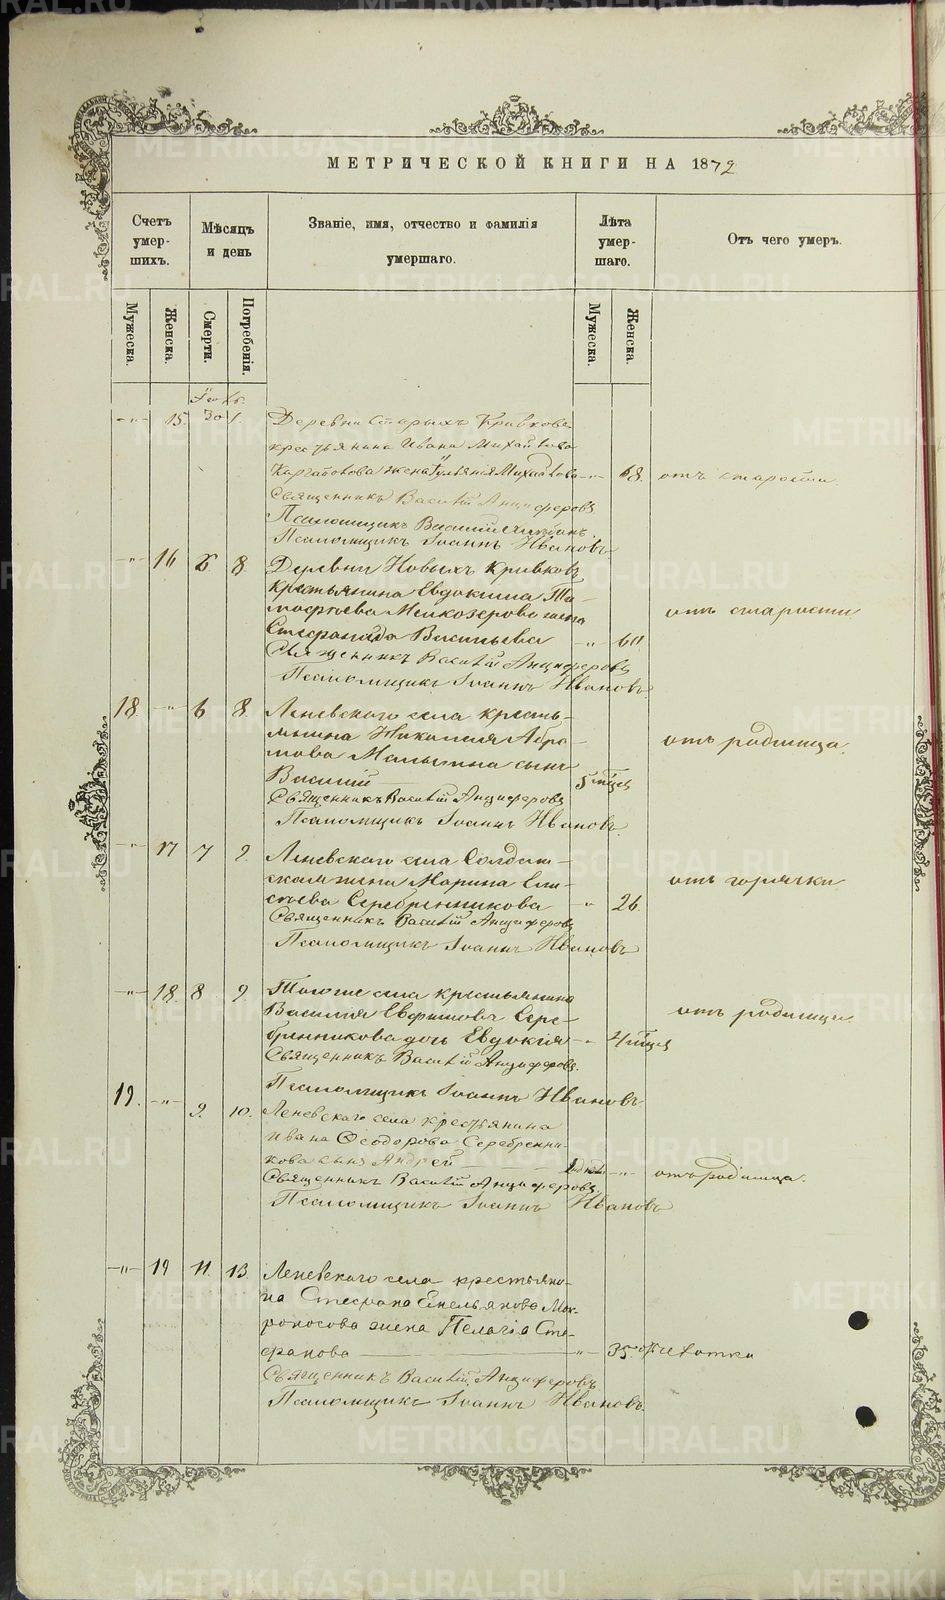 МЕТРИЧЕСКОЙ КНИГИ НА 1872
Счетъ умер-шихъ.
Мѣсяцъ и день
Званіе, имя, отчество и фамилія умершаго.
Лѣта умер-шаго.
Отъ чего умеръ.
Мужеска.
Женска.
Смерти.
Погребенія.
Мужеска.
Женска.
-"- 15. 30 1. Деревни Старыхъ Кривкова
крестьянина Ивана Михайлова
жена Михайлова -"- 68. отъ старости
Священникъ Василій Анциферовъ
Псаломщикъ Василій
Псаломщикъ Іоаннъ Ивановъ
-"- 16 6 8. Деревни Новыхъ Кривковъ
крестьянина Евдокима Ти-
мофѣева Мелкозерова жена
Стефанида Васильева -"- 60. отъ старости
Священникъ Василій Анциферовъ
Псаломщикъ Іоаннъ Ивановъ
18. -"- 6 8. Леневскаго села кресть-
янина Николая Абра-
мова Малыгина сынъ
Василій 5 мѣсц отъ родимца.
Священникъ Василій Анциферовъ
Псаломщикъ Іоаннъ Ивановъ.
-"- 17 7 9. Леневскаго села Солдат-
ская жена Марина Ели-
сѣева Серебренникова -"- 26. отъ горячки
Священникъ Василій Анциферовъ
Псаломщикъ Іоаннъ Ивановъ
-"- 18. 8 9. Тогоже села крестьянина
Василія Евфимова Сере-
бренникова дочь Евдокія -"- 4 мѣсц отъ родимца
Священникъ Василій Анциферовъ.
Псаломщикъ Іоаннъ Ивановъ
19. -"- 9. 10. Леневскаго села крестьянина
Ивана Ѳеодорова Серебренни-
кова сынъ Андрей -"- отъ родимца.
Священникъ Василій Анциферовъ
Псаломщикъ Іоаннъ Ивановъ
-"- 19 11. 13. Леневскаго села крестьяни-
на Стефана Емельянова Мок-
роносова жена Пелагія Сте-
фанова -"- 35. отъ чахотки
Священникъ Василій Анциферовъ
Псаломщикъ Іоаннъ Ивановъ.
METRIKI.GASO-URAL.RU